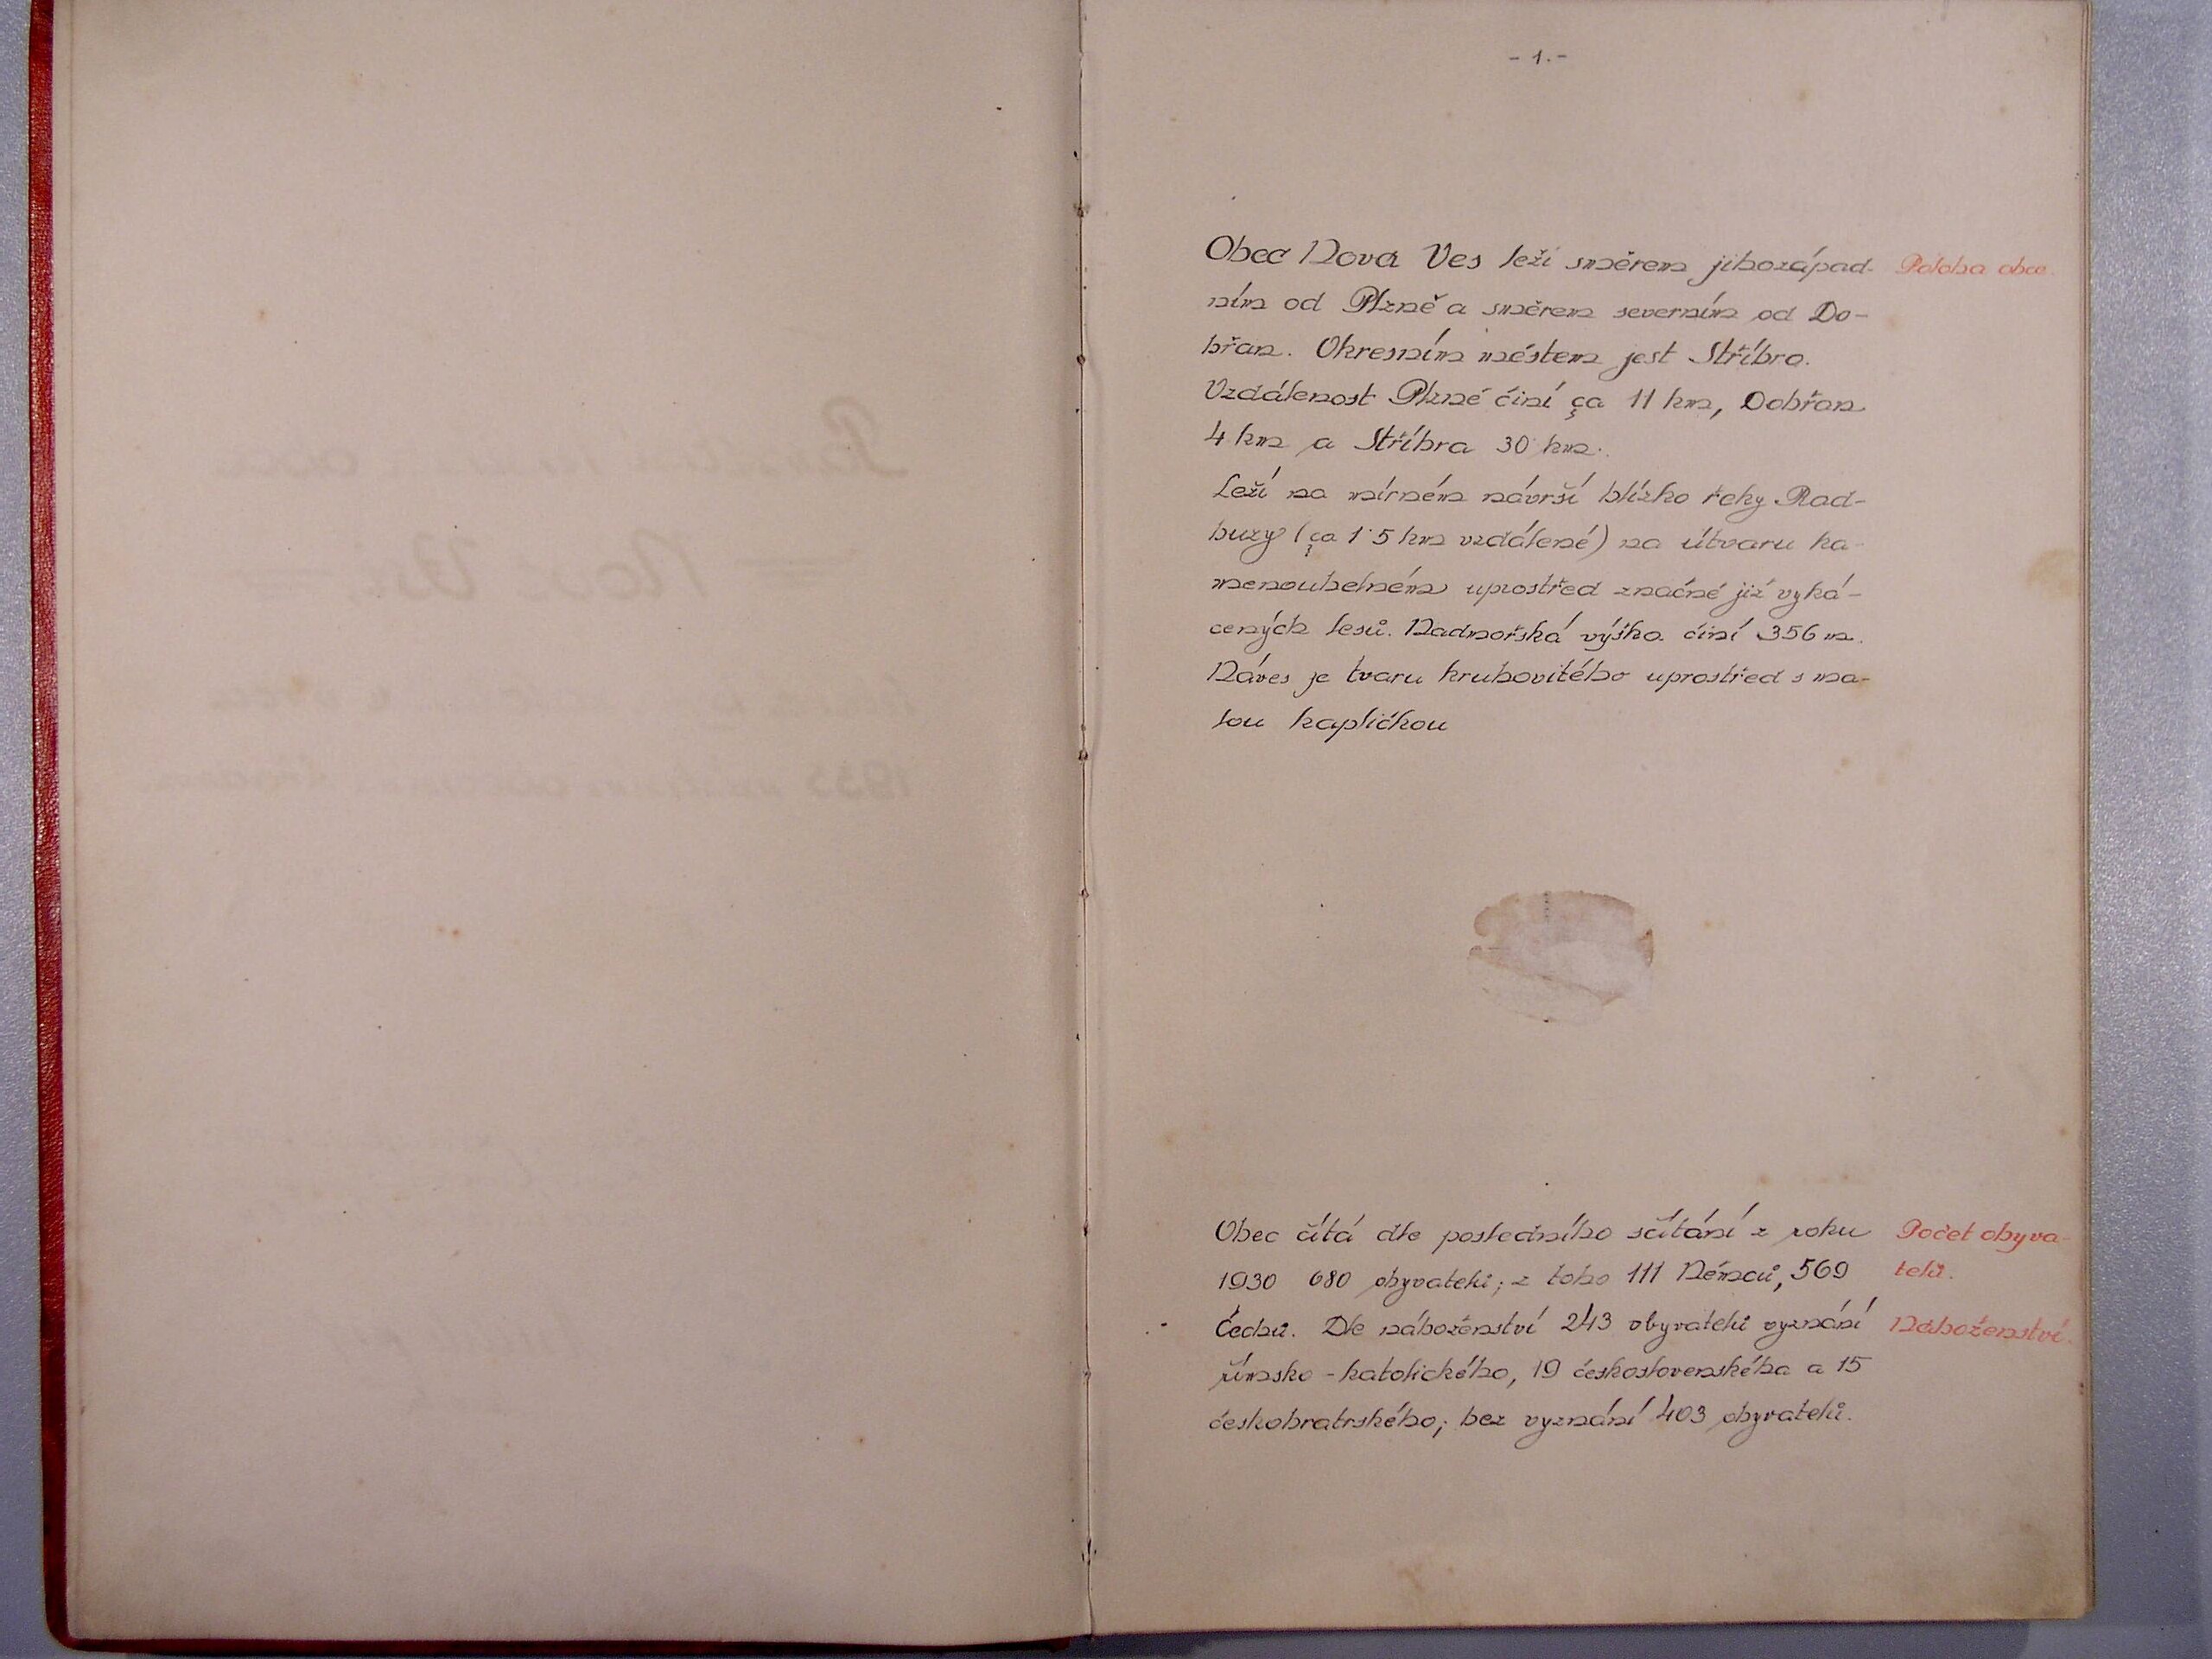 - 1. -
Obec Nová Ves leží směrem jihozápad- Poloha obce.
ním od Plzně a směrem severním od Do-
břan. Okresním městem jest Stříbro.
Vzdálenost Plzně činí ça 11 km, Dobřan
4 km a Stříbra 30 km.
Leží na mírném návrší blízko řeky Rad-
buzy (ça 1·5 km vzdálené) na útvaru ka-
menouhelném uprostřed značně již vyká-
cených lesů. Nadmořská výška činí 356 m.
Náves je tvaru kruhovitého uprostřed s ma-
lou kapličkou
Obec čítá dle posledního sčítání z roku Počet obyva-
1930 680 obyvatelů; z toho 111 Němců, 569 telů.
Čechů. Dle náboženství 243 obyvatelů vyznání Náboženství.
římsko-katolického, 19 československého a 15
českobratrského; bez vyznání 403 obyvatelů.